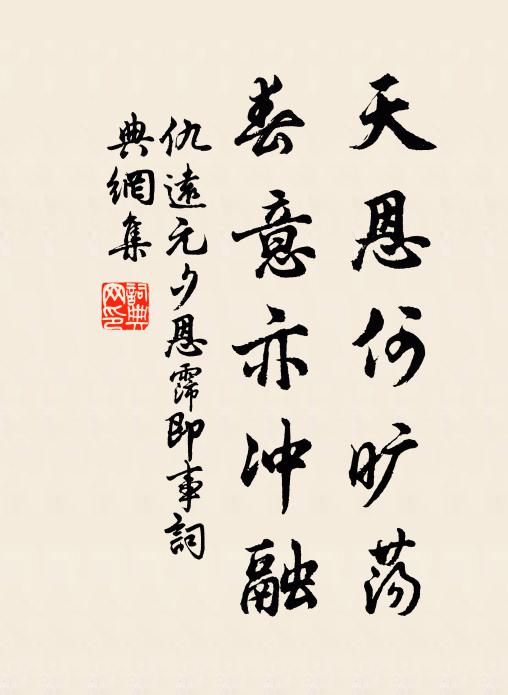 天恩何旷荡
春意亦冲融
仇遠元夕恩霈即事詞
典網集
詞典网印